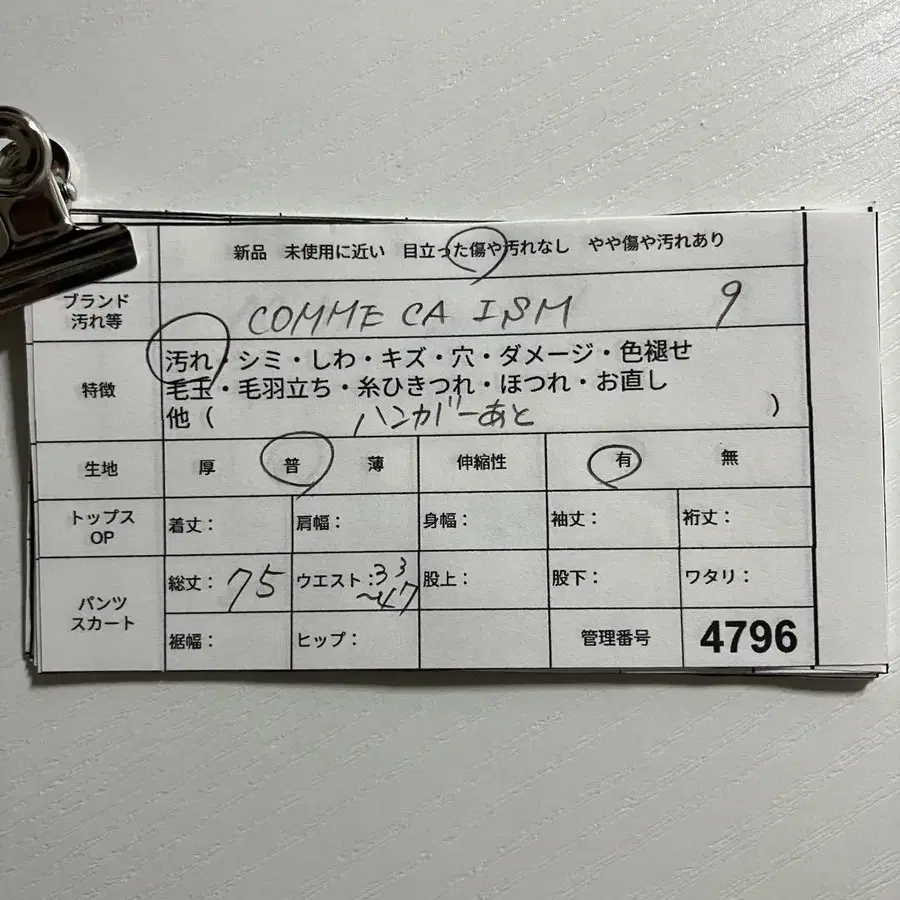 新品 未使用に近い 目立った傷や汚れなし やや傷や汚れあり
ブランド
汚れ等
COMME CA ISM 9
特徴
汚れ・シミ・しわ・キズ・穴・ダメージ・色褪せ
毛玉・毛羽立ち・糸ひきつれ・ほつれ・お直し
他（ ハンガーあと ）
生地 厚 普 薄 伸縮性 有 無
トップス
OP
着丈： 肩幅： 身幅： 袖丈： 裄丈：
パンツ
スカート
総丈：75 ウエスト：33 股上： 股下： ワタリ：
〜47
裾幅： ヒップ： 管理番号 4796